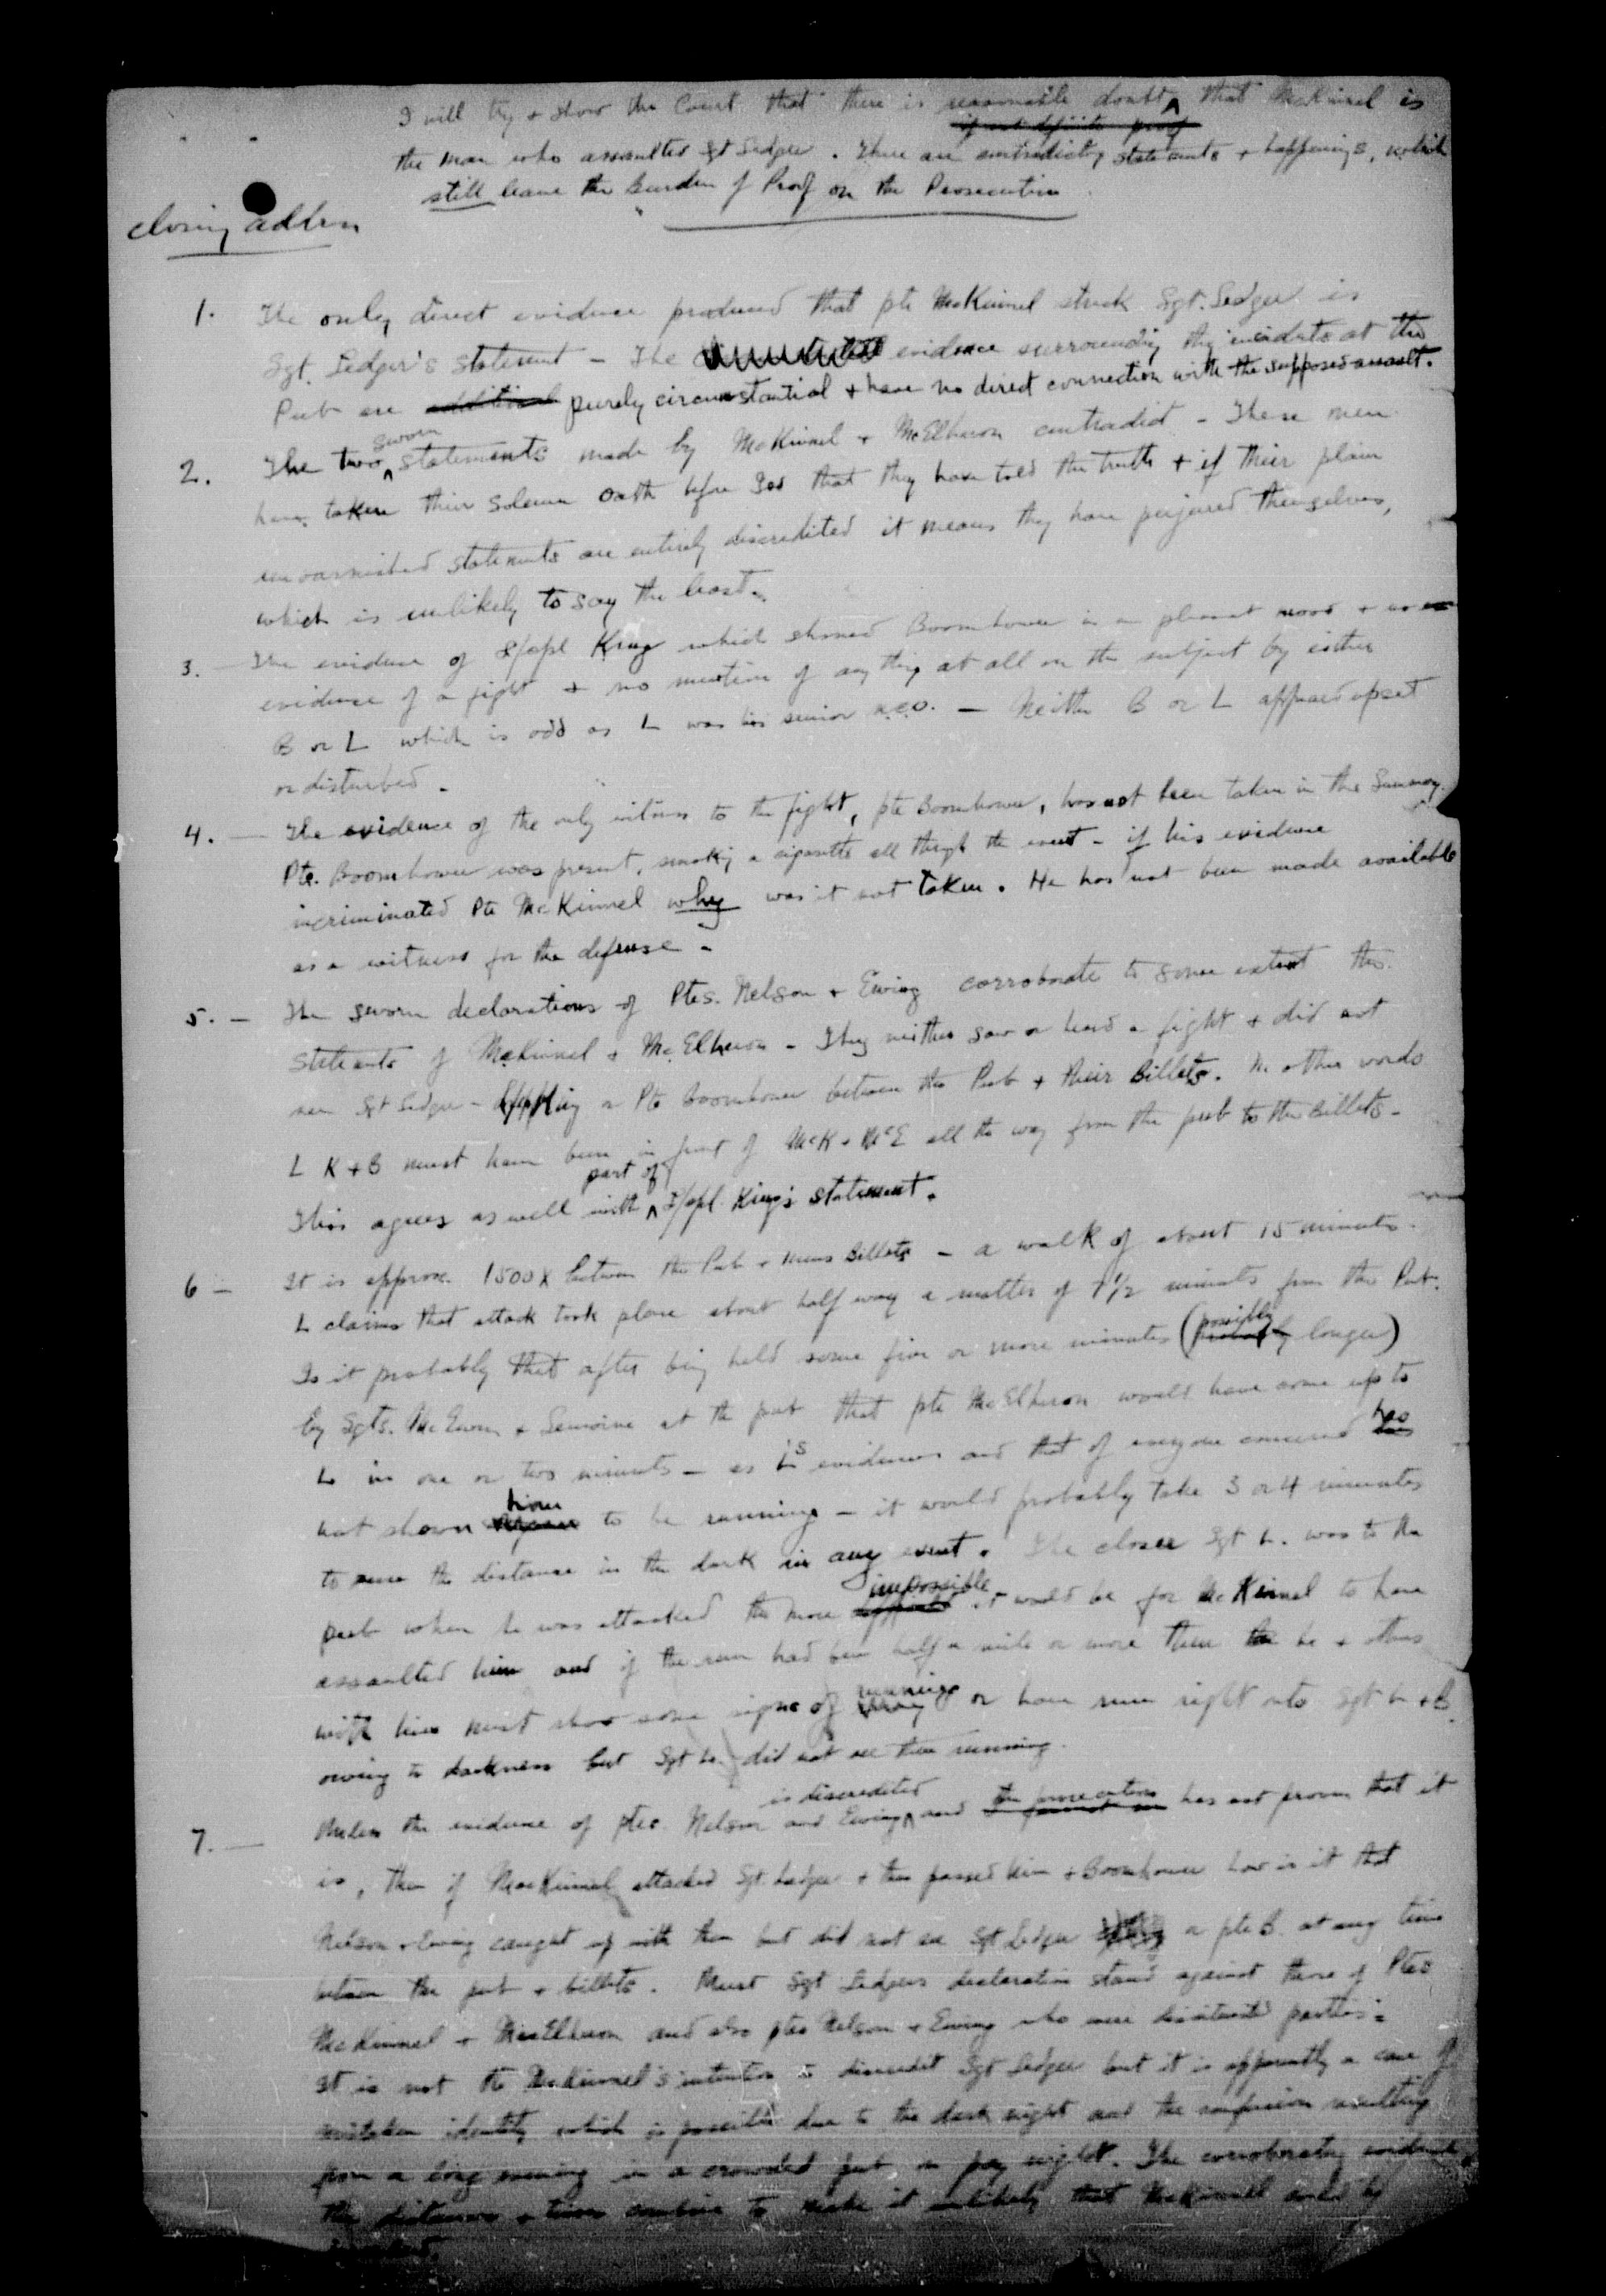 I will try + show the Court that there is reasonable doubt that McKinnel is
if not definite proof
the man who assaulted Sgt Ledger. There are contradictory statements + happenings, which
still leave the Burden of Proof on the Prosecution
closing address
1. The only direct evidence produced that pte McKinnel struck Sgt. Ledger is
Sgt. Ledger's statement - The evidence surrounding the incidents at the
Pub are additional purely circumstantial + have no direct connection with the supposed assault.
2. The two sworn statements made by McKinnel + McElheron contradict - These men
have taken their solemn oath before God that they have told the truth + if their plain
unvarnished statements are entirely discredited it means they have perjured themselves,
which is unlikely to say the least.
3. - The evidence of L/Cpl King which showed Boomhower in a pleasant mood + no
evidence of a fight + no mention of anything at all on the subject by either
B or L which is odd as L was his senior N.C.O. - Neither B or L appeared upset
or disturbed.
4. - The evidence of the only witness to the fight, pte Boomhower, has not been taken in the Summary.
Pte. Boomhower was present, smoking a cigarette all through the event - if his evidence
incriminated Pte McKinnel why was it not taken. He has not been made available
as a witness for the defense -
5. - The sworn declarations of Ptes. Nelson + Ewing corroborate to some extent the
statements of McKinnel + McElheron - They neither saw or heard a fight + did not
see Sgt Ledger or Pte Boomhower between the Pub + their Billets. In other words
L K + B must have been in front of McK + McE all the way from the pub to the Billets -
This agrees as well with part of L/Cpl. King's statement.
6 - It is approx. 1500x between the Pub + mens Billets - a walk of about 15 minutes.
L claims that attack took place about half way a matter of 7½ minutes from the Pub.
Is it probably that after being held some five or more minutes (possibly probably longer)
by Sgts. McEwen + Lemoine at the pub that pte McElheron would have come up to
L in one or two minutes - as L's evidence and that of everyone concerned has
not shown him to be running - it would probably take 3 or 4 minutes
to run the distance in the dark in any event. The closer Sgt L. was to the
pub when he was attacked the more impossible it would be for McKinnel to have
assaulted him and if the run had been half a mile or more then he + others
with him must show some signs of running or have run right into Sgt L + B
owing to darkness but Sgt L. did not see them running.
7. - Unless the evidence of ptes. Nelson and Ewing is discredited and the prosecution has not proven that it
is, then if MacKinnel attacked Sgt. Ledger + then passed him + Boomhower how is it that
Nelson + Ewing caught up with them but did not see Sgt Ledger or pte B. at any time
between the pub + billets. Must Sgt Ledgers declaration stand against those of Ptes
McKinnel + MacElheron and also ptes Nelson + Ewing who were disinterested parties.
It is not the McKinnel's intention to discredit Sgt Ledger but it is apparently a case of
mistaken identity which is possible due to the dark night and the confusion resulting
from a long evening in a crowded pub on pay night. The corroborating evidence
the distance + time combine to make it unlikely that McKinnell could be